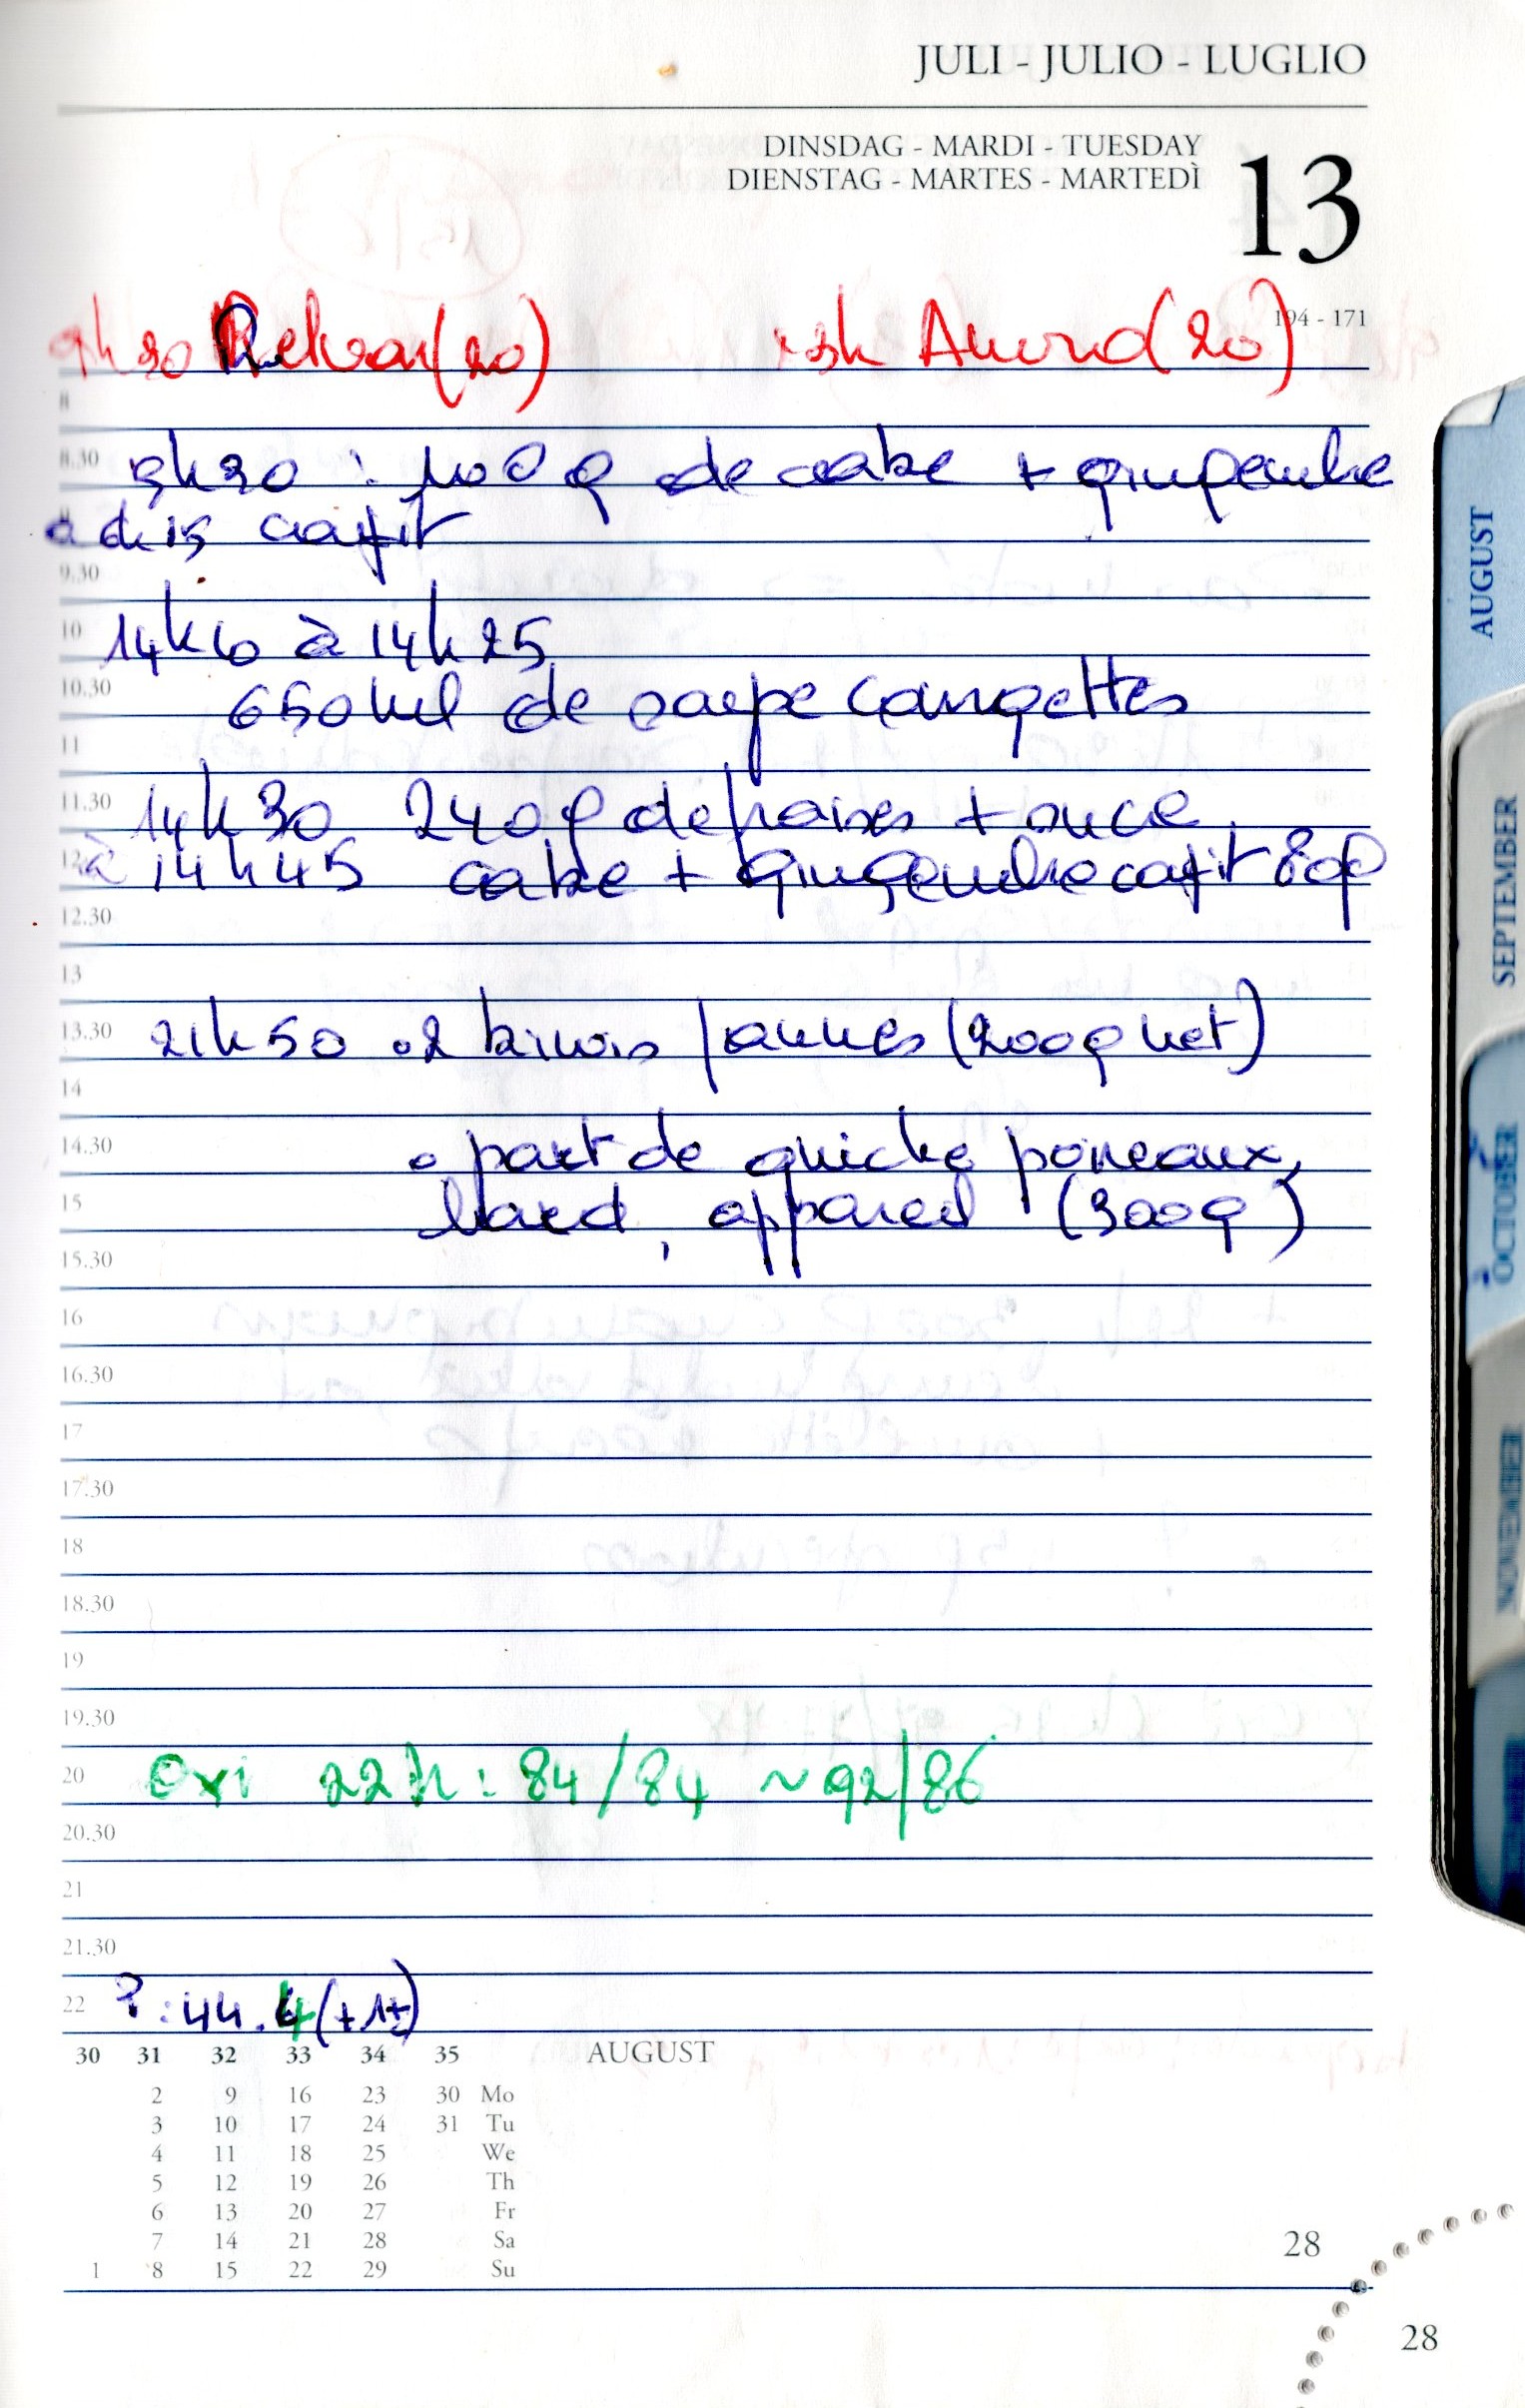 JULI - JULIO - LUGLIO
DINSDAG - MARDI - TUESDAY
DIENSTAG - MARTES - MARTEDÌ
13
194 - 171
(20) (20)
8
8.30 : 100 g de cake + gingembre
confit
9.30
10 à 14h25
10.30 650ml de soupe courgettes
11
11.30 14h30 240g de fraises + sucre
12 à 14h45 cake + gingembre confit 80g
12.30
13
13.30 21h50 • 2 kiwis jaunes (200g net)
14
14.30 • part de quiche poireaux,
15 lard, appareil (300g)
15.30
16
16.30
17
17.30
18
18.30
19
19.30
20 Oxi 22h : 84/84 ~ 92/86
20.30
21
21.30
22 : 44.4
30 31 32 33 34 35 AUGUST
2 9 16 23 30 Mo
3 10 17 24 31 Tu
4 11 18 25 We
5 12 19 26 Th
6 13 20 27 Fr
7 14 21 28 Sa
1 8 15 22 29 Su
28
28
AUGUST
SEPTEMBER
OCTOBER
NOVEMBER